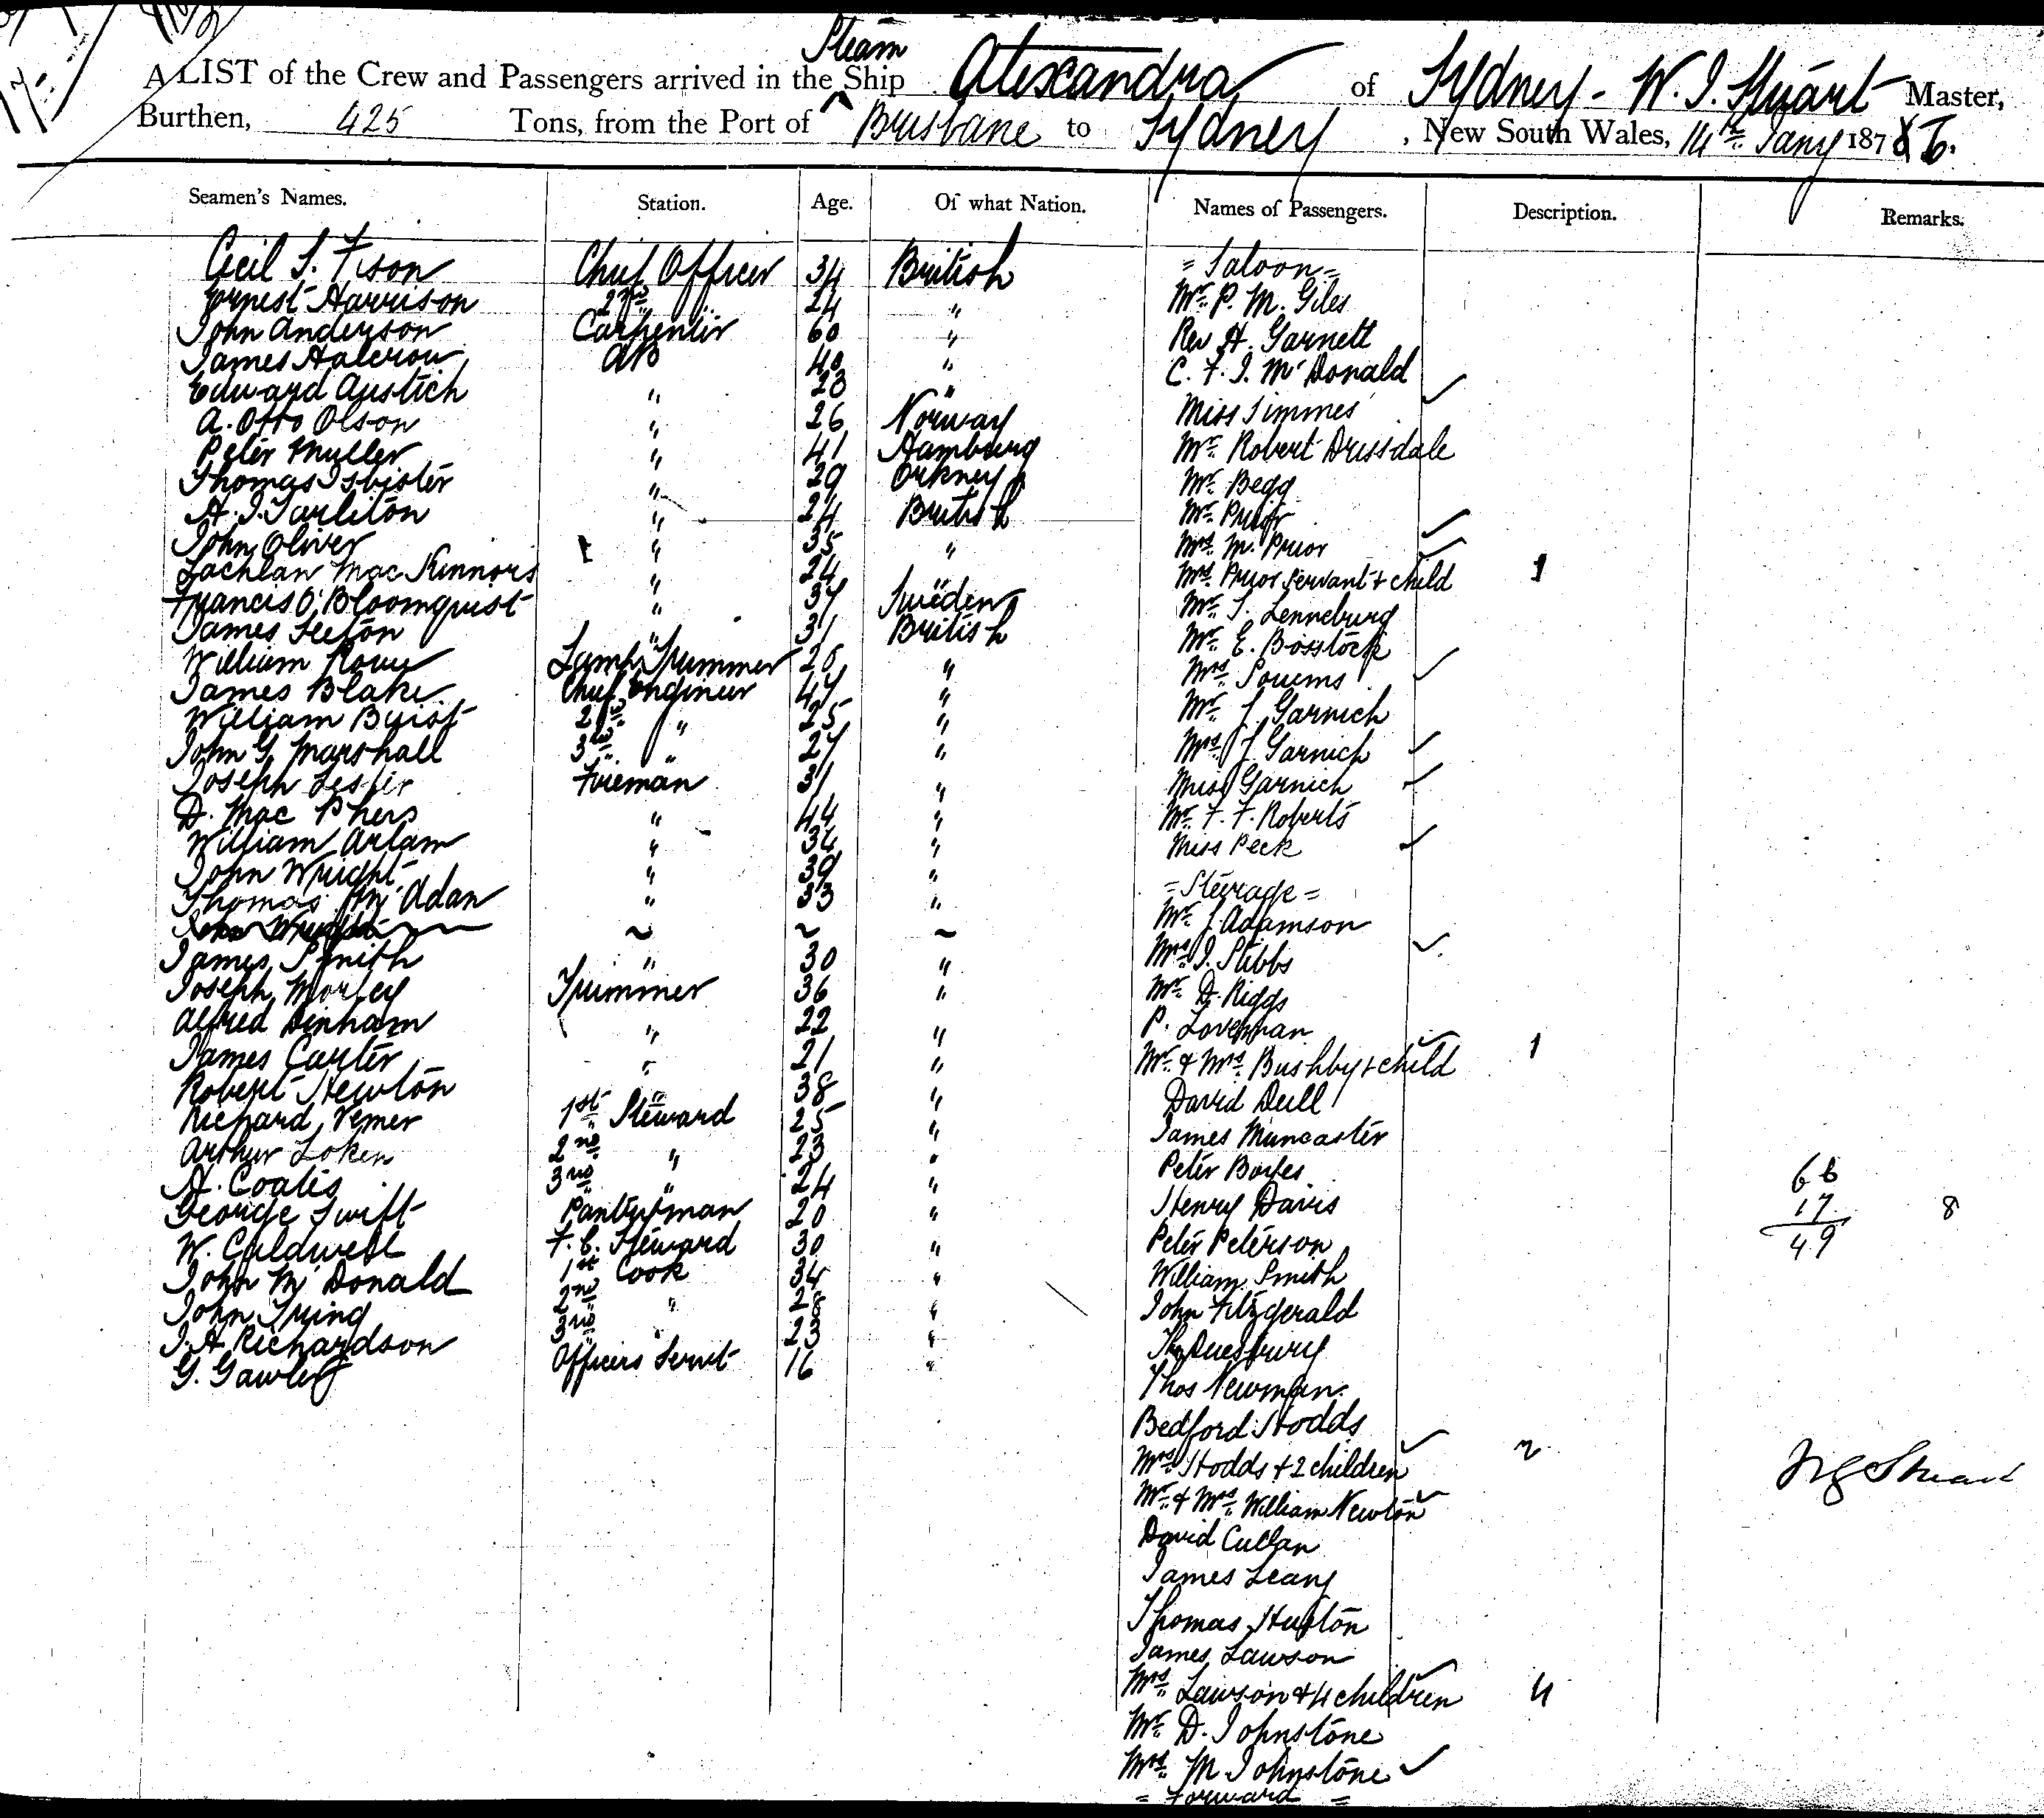 Steam
A LIST of the Crew and Passengers arrived in the Ship Alexandra of Sydney - W. J. Stuart Master,
Burthen, 425 Tons, from the Port of Brisbane to Sydney, New South Wales, 14th Jany 187
Seamen's Names. Station. Age. Of what Nation. Names of Passengers. Description. Remarks.
Cecil S. Fison Chief Officer 34 British = Saloon =
Ernest Harrison 2nd " 24 " Mr. P. M. Giles
John Anderson Carpenter 60 " Rev H. Garnett
James Halcrow AB 40 " C. F. J. McDonald
Edward Austich " 28 " Miss Simmes
A. Otto Olson " 26 Norway Mr. Robert Drissdale
Peter Muller " 41 Hamburg Mr. Begg
Thomas Isbister " 29 Orkney Mr. Prior
H. J. Tarliton " 24 British Mrs. M. Prior
John Oliver " 35 " Mrs. Prior Servant & child 1
Lachlan Mac Kinnors " 24 " Mr. S. Lenneburg
Francis O. Bloomquist " 37 Sweden Mr. E. Bosstock
James Seeton " 31 British Mrs. Souems
William Rowe Lamp Trimmer 26 " Mr. J. Garnich
James Blake Chief Engineer 47 " Mrs. J. Garnich
William Buist 2nd " 25 " Miss Garnich
John G. Marshall 3rd " 27 " Mr. F. F. Roberts
Joseph Lester Fireman 31 " Miss Peck
D. Mac Phers " 44 " = Steerage =
William Arlam " 34 " Mr. J. Adamson
John Wright " 39 " Mrs. J. Stibbs
Thomas McAdan " 33 " Mr. D. Riggs
John Wright ~ ~ ~ P. Loveman
James Smith " 30 " Mr. & Mrs. Bushby & child 1
Joseph Morley Trimmer 36 " David Dull
Alfred Dinham " 22 " James Muncaster
James Carter " 21 " Peter Boyles
Robert Newton " 38 " Henry Davis
Richard Vemer 1st Steward 25 " Peter Peterson
Arthur Loken 2nd " 23 " William Smith
H. Coates 3rd " 24 " John Fitzgerald
George Swift Pantryman 20 "
W. Caldwell F. C. Steward 30 " Thos Newman
John McDonald 1st Cook 34 " Bedford Hodds
John Iring 2nd " 28 " Mrs. Hodds & 2 children 2
J. A. Richardson 3rd " 23 " Mr. & Mrs. William Newton
G. Gawley Officers Servt 16 " David Cullan
James Leany
Thomas Hutton
James Lawson
Mrs. Lawson & 4 children 4
Mr. D. Johnstone
Mrs. M Johnstone
= Forward =
66
17 8
49